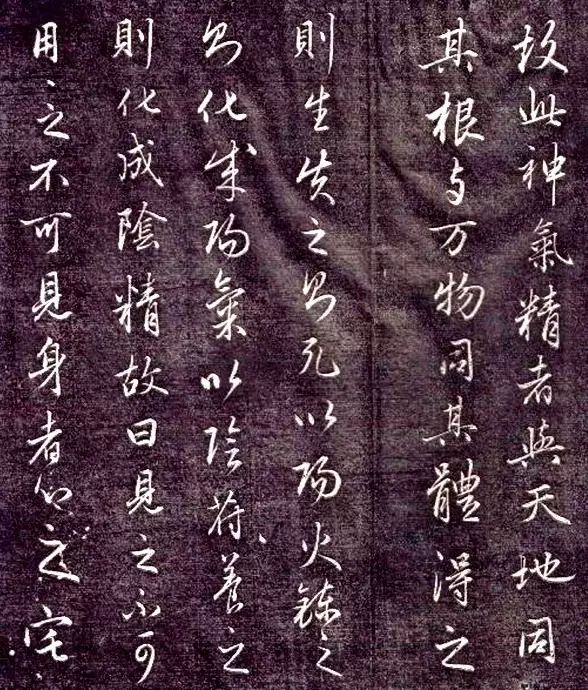 故此神氣精者與天地同
其根与万物同其體得之
則生失之則死以陽火鍊之
則化成陽氣以陰苻養之
則化成陰精故曰見之不可
用、之不可見身者心之宅